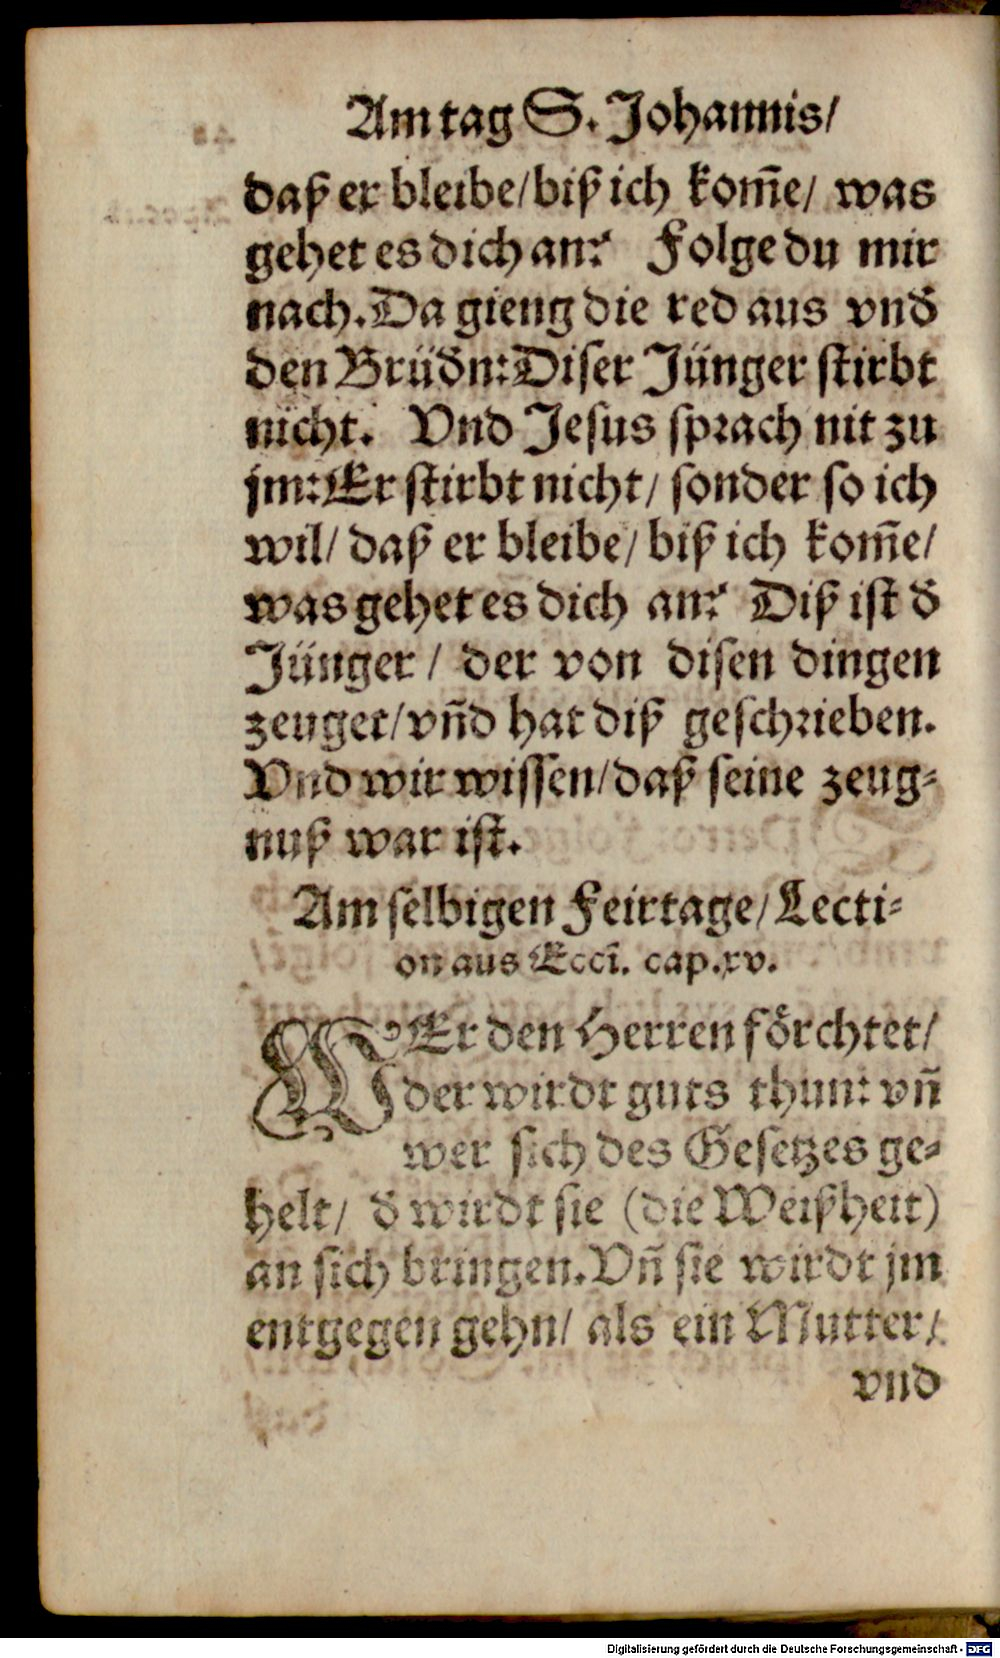 Am tag S. Johannis/
daß er bleibe/biß ich kom̃e/ was
gehet es dich an? Folge du mir
nach. Da gieng die red aus vnd̕
den Brüd̕n: Diser Jünger stirbt
nicht. Vnd Jesus sprach nit zu
jm: Er stirbt nicht/ sonder so ich
wil/ daß er bleibe/ biß ich kom̃e/
was gehet es dich an? Diß ist d̕
Jünger/ der von disen dingen
zeuget/ vñd hat diß geschrieben.
Vnd wir wissen/ daß seine zeug⸗
nuß war ist.
Am selbigen Feirtage/ Lecti⸗
on aus Eccĩ. cap. xv.
WEr den Herren förchtet/
der wirdt guts thun: vñ
wer sich des Gesetzes ge⸗
helt/ d̕ wirdt sie (die Weißheit)
an sich bringen. Vñ sie wirdt jm
entgegen gehn/ als ein Mutter/
vnd
Digitalisierung gefördert durch die Deutsche Forschungsgemeinschaft - DFG